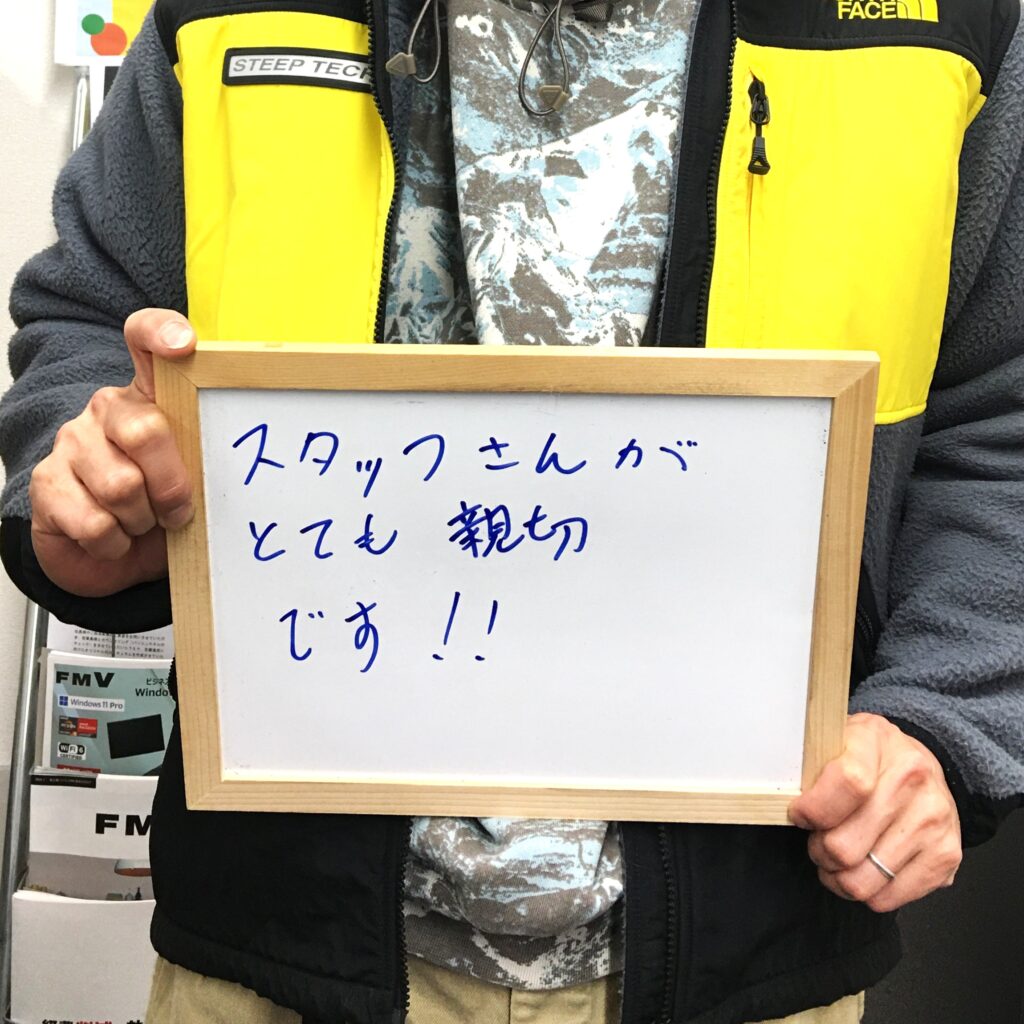 FACE
STEEP TECH
スタッフさんが
とても親切
です!!
FMV
ビジネ
Windo
Windows 11 Pro
Wi Fi 6
CERTIFIED
FM